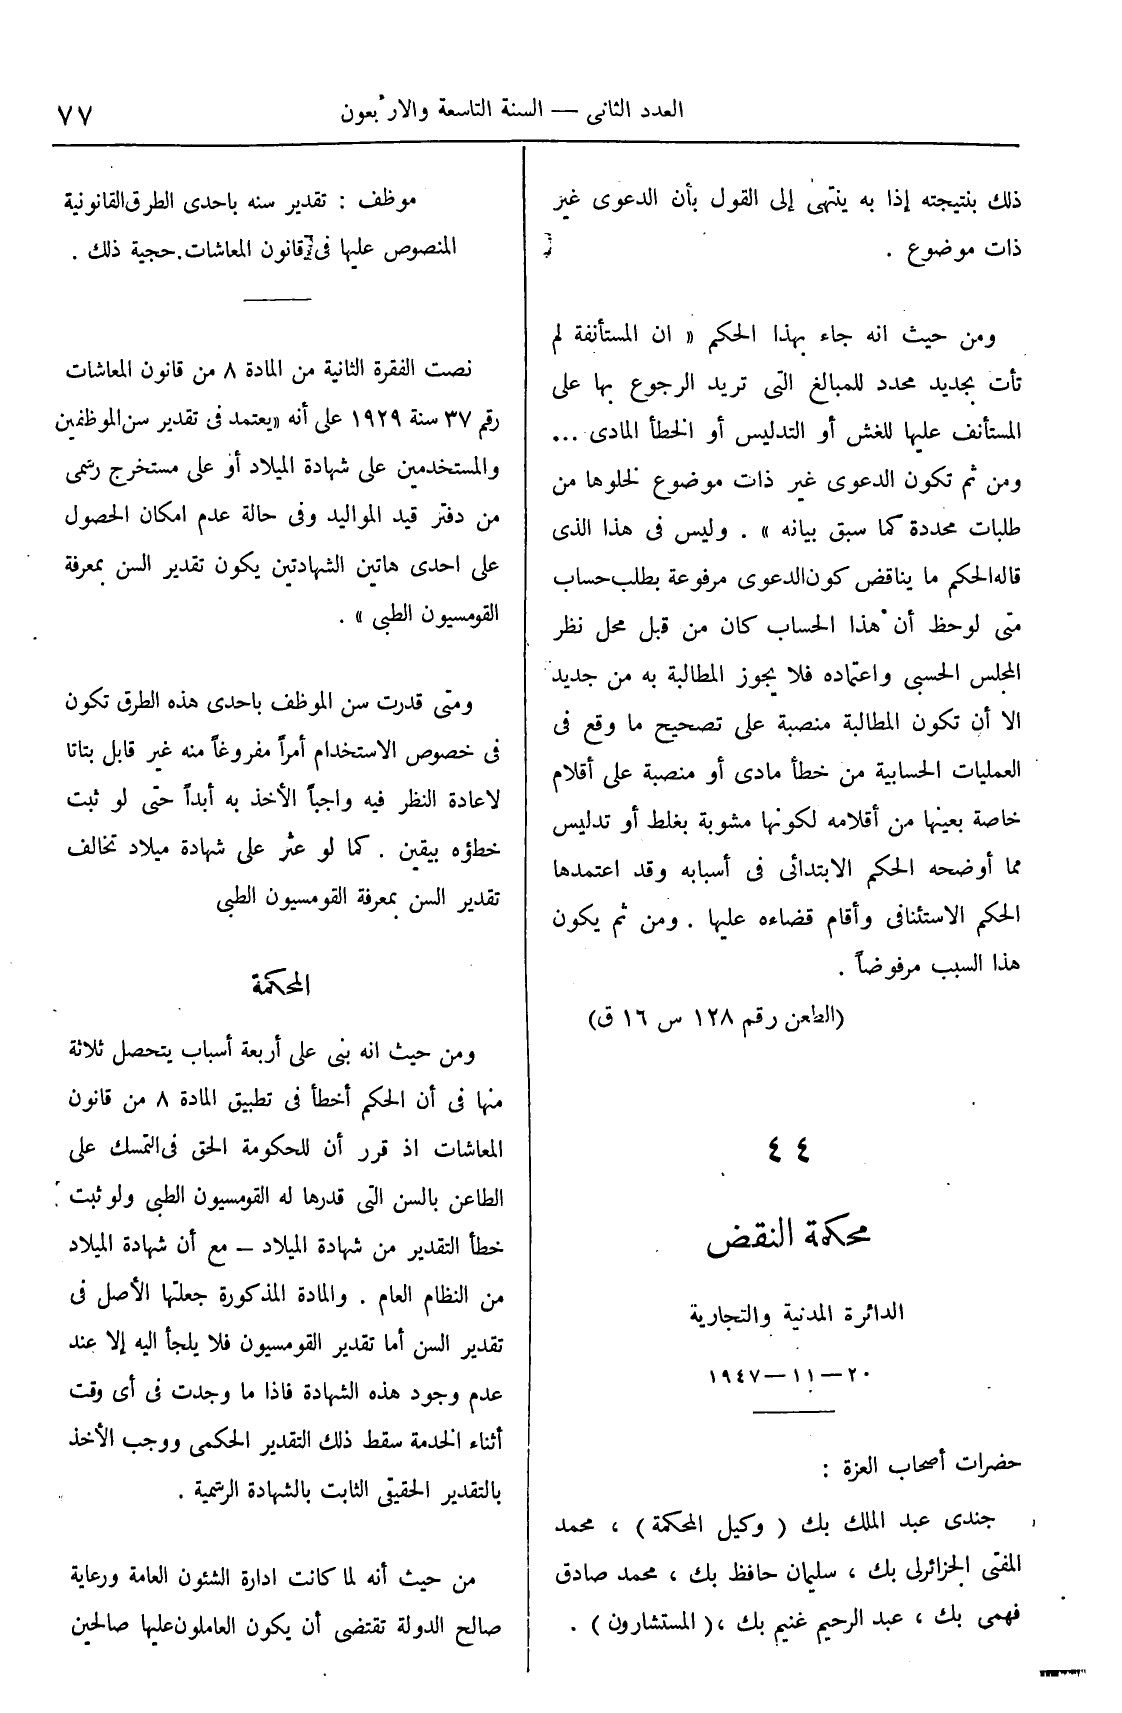 العدد الثانى — السنة التاسعة والاربعون
٧٧
ذلك بنتيجته إذا به ينتهى إلى القول بأن الدعوى غير
ذات موضوع .
ومن حيث انه جاء بهذا الحكم « ان المستأنفة لم
تأت بجديد محدد للمبالغ التى تريد الرجوع بها على
المستأنف عليها للغش أو التدليس أو الخطأ المادى ...
ومن ثم تكون الدعوى غير ذات موضوع لخلوها من
طلبات محددة كما سبق بيانه » . وليس فى هذا الذى
قاله الحكم ما يناقض كون الدعوى مرفوعة بطلب حساب
متى لوحظ أن هذا الحساب كان من قبل محل نظر
المجلس الحسبى واعتماده فلا يجوز المطالبة به من جديد
الا أن تكون المطالبة منصبة على تصحيح ما وقع فى
العمليات الحسابية من خطأ مادى أو منصبة على أقلام
خاصة بعينها من أقلامه لكونها مشوبة بغلط أو تدليس
مما أوضحه الحكم الابتدائى فى أسبابه وقد اعتمدها
الحكم الاستئنافى وأقام قضاءه عليها . ومن ثم يكون
هذا السبب مرفوضاً .
(الطعن رقم ١٢٨ س ١٦ ق)
٤٤
محكمة النقض
الدائرة المدنية والتجارية
٢٠—١١—١٩٤٧
حضرات أصحاب العزة :
جندى عبد الملك بك ( وكيل المحكمة ) ، محمد
المفتى الجزائرلى بك ، سليمان حافظ بك ، محمد صادق
فهمى بك ، عبد الرحيم غنيم بك ، ( المستشارون ) .
موظف : تقدير سنه باحدى الطرق القانونية
المنصوص عليها فى قانون المعاشات . حجية ذلك .
نصت الفقرة الثانية من المادة ٨ من قانون المعاشات
رقم ٣٧ سنة ١٩٢٩ على أنه «يعتمد فى تقدير سن الموظفين
والمستخدمين على شهادة الميلاد أو على مستخرج رسمى
من دفتر قيد المواليد وفى حالة عدم امكان الحصول
على احدى هاتين الشهادتين يكون تقدير السن بمعرفة
القومسيون الطبى » .
ومتى قدرت سن الموظف باحدى هذه الطرق تكون
فى خصوص الاستخدام أمراً مفروغاً منه غير قابل بتاتا
لاعادة النظر فيه واجباً الأخذ به أبداً حتى لو ثبت
خطؤه بيقين . كما لو عثر على شهادة ميلاد تخالف
تقدير السن بمعرفة القومسيون الطبى
المحكمة
ومن حيث انه بنى على أربعة أسباب يتحصل ثلاثة
منها فى أن الحكم أخطأ فى تطبيق المادة ٨ من قانون
المعاشات اذ قرر أن للحكومة الحق فى التمسك على
الطاعن بالسن التى قدرها له القومسيون الطبى ولو ثبت
خطأ التقدير من شهادة الميلاد — مع أن شهادة الميلاد
من النظام العام . والمادة المذكورة جعلتها الأصل فى
تقدير السن أما تقدير القومسيون فلا يلجأ اليه إلا عند
عدم وجود هذه الشهادة فاذا ما وجدت فى أى وقت
أثناء الخدمة سقط ذلك التقدير الحكمى ووجب الأخذ
بالتقدير الحقيقى الثابت بالشهادة الرسمية .
من حيث أنه لما كانت ادارة الشئون العامة ورعاية
صالح الدولة تقتضى أن يكون العاملون عليها صالحين